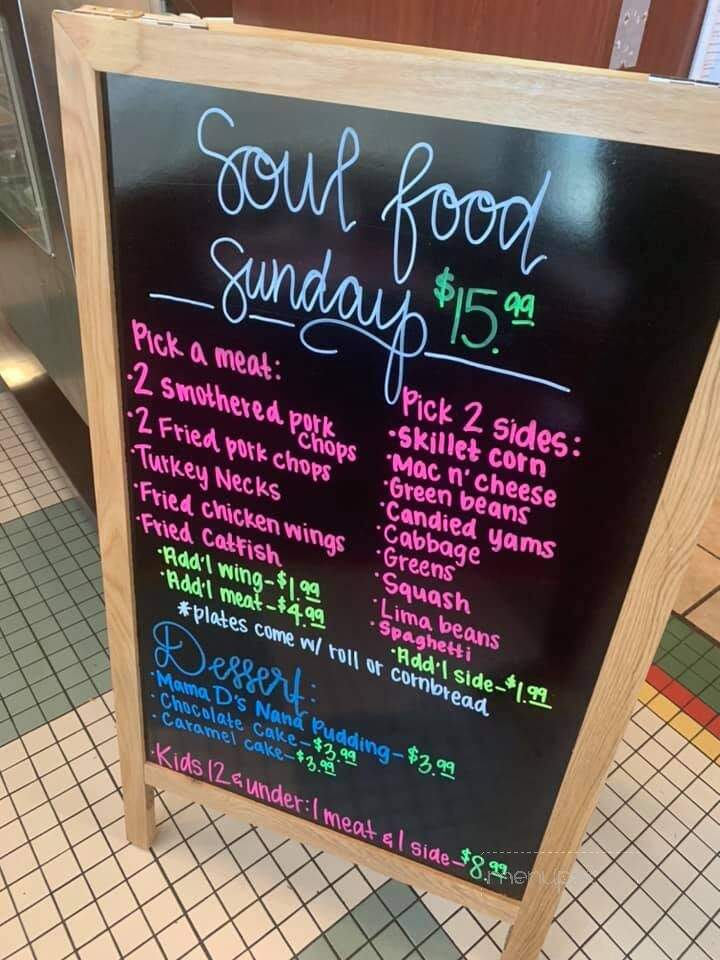 Soul food
Sunday $15.99
Pick a meat:
·2 smothered pork
chops
·2 Fried pork chops
·Turkey Necks
·Fried chicken wings
·Fried Catfish
·Add'l wing-$1.99
·Add'l meat-$4.99
Pick 2 sides:
·skillet corn
·Mac n' cheese
·Green beans
·Candied yams
·Cabbage
·Greens
·Squash
·Lima beans
·Spaghetti
·Add'l side-$1.99
*plates come w/ roll or cornbread
Dessert:
·Mama D's Nana Pudding-$3.99
·Chocolate Cake-$3.99
·Caramel cake-$3.99
·Kids 12 & under: 1 meat & 1 side-$8.99